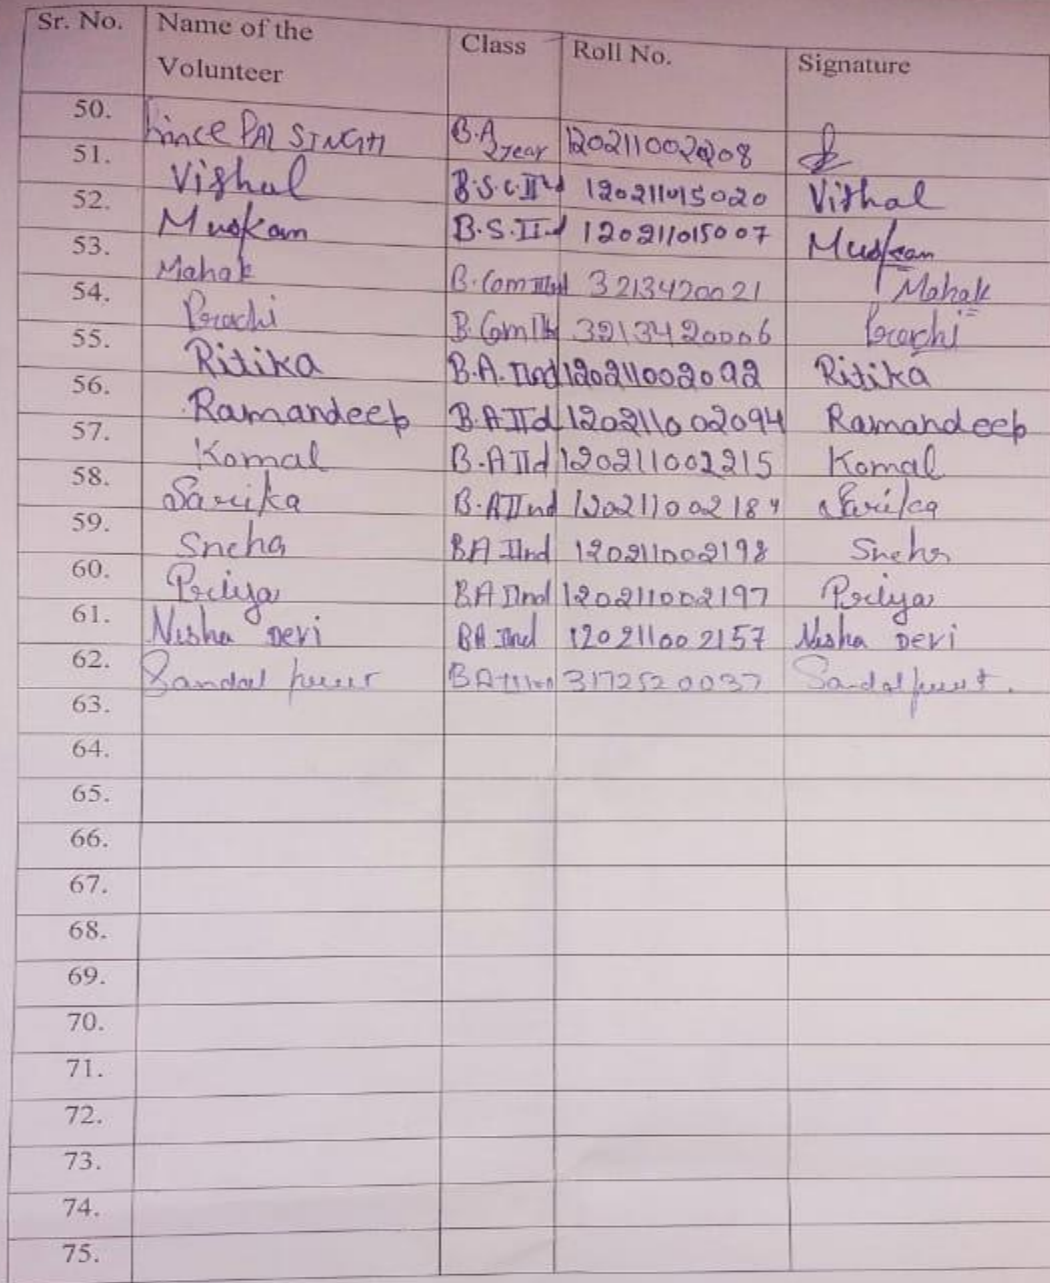 Sr. No. Name of the Volunteer Class Roll No. Signature
50. Prince PAL SINGH B.A 2year
51. Vishal B.S.C.IInd 120211015020 Vishal
52. Muskan B.S.IInd 120211015007 Muskan
53. Mahak B.Com IInd 3213420021 Mahak
54. Prachi B.Com 3213420006 Prachi
55. Ritika B.A. IInd 120211002092 Ritika
56. Ramandeep B.A IId 120211002094 Ramandeep
57. Komal B.A IId 120211002215 Komal
58. Sarika B.A IInd 120211002184 Sarika
59. Sneha BA IInd 120211002198 Sneha
60. Priya BA IInd 120211002197 Priya
61. Nisha Devi BA IInd 120211002157 Nisha Devi
62. 3172520037
63.
64.
65.
66.
67.
68.
69.
70.
71.
72.
73.
74.
75.